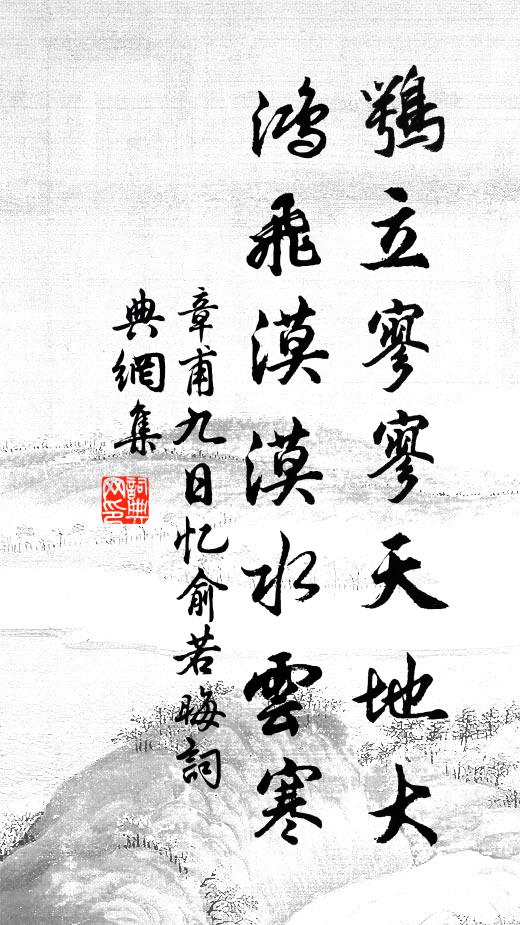 鶚立寥寥天地大
鴻飛漠漠水雲寒
章甫九日忆俞若晦詞
典網集
詞典网印